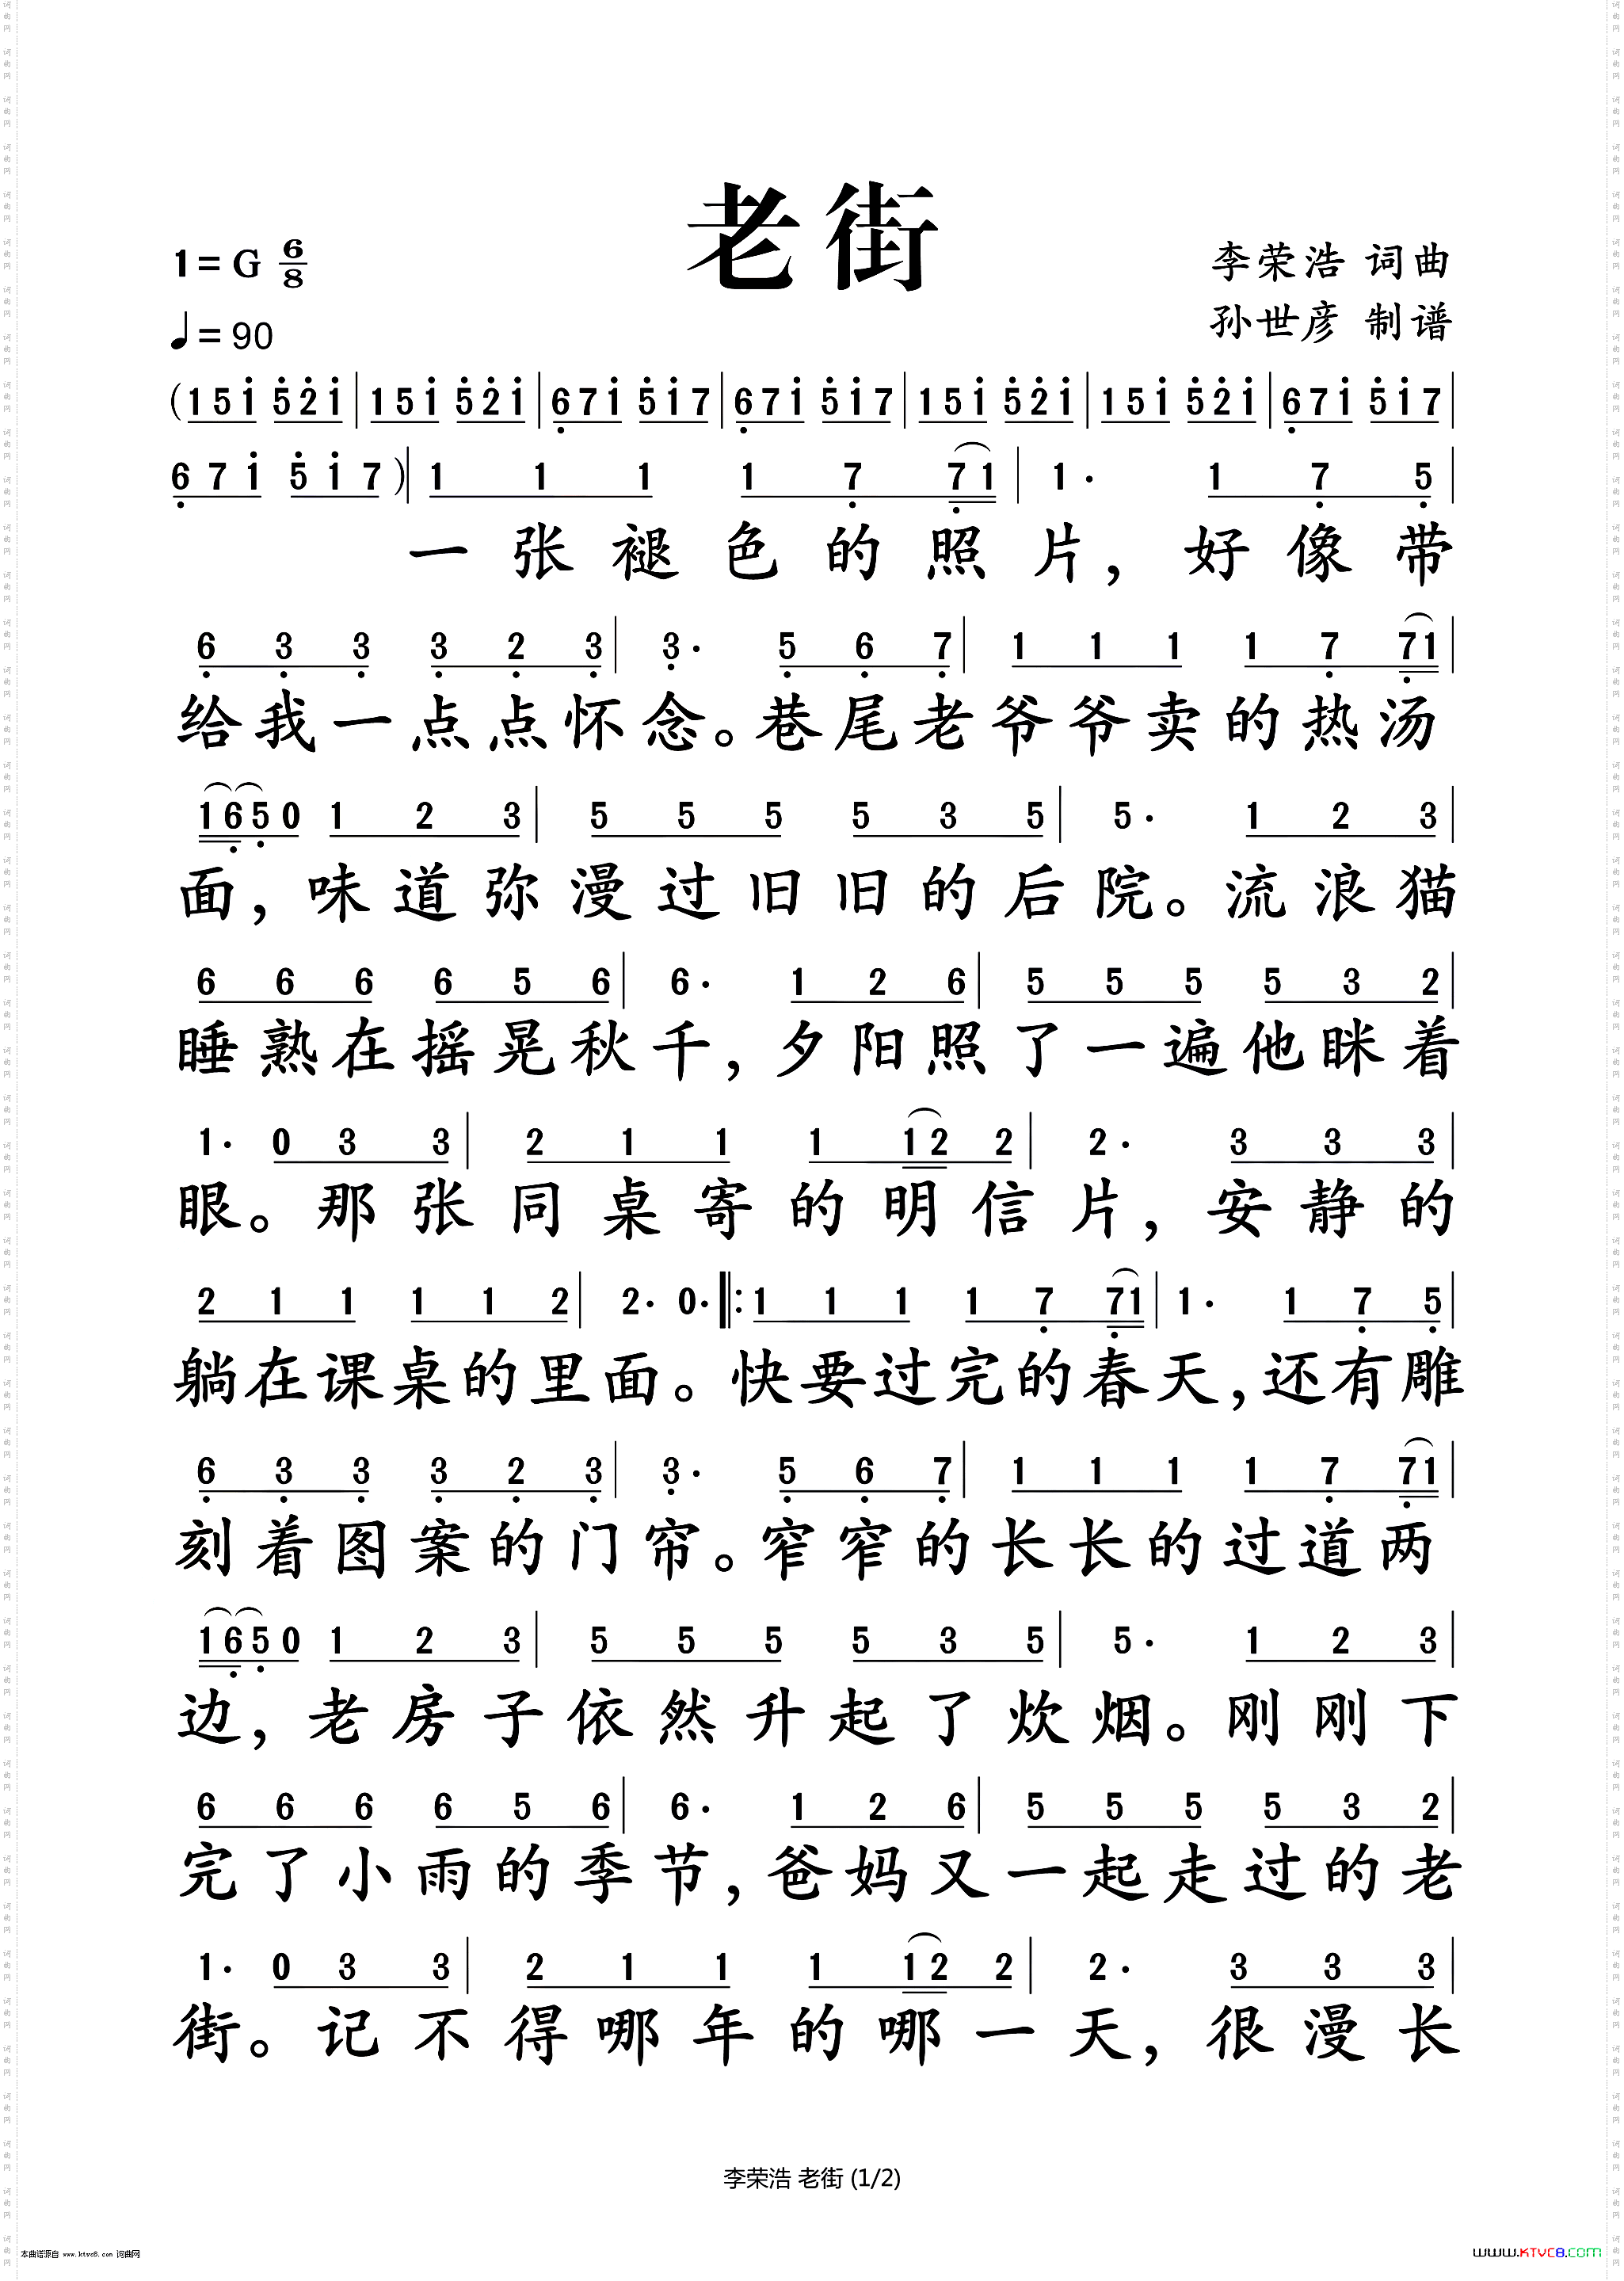 老街
1=G 6/8
李荣浩 词曲
♩=90
孙世彦 制谱
(1 5 1̇ 5̇ 2̇ 1̇ | 1 5 1̇ 5̇ 2̇ 1̇ | 6̣ 7 1̇ 5̇ 1̇ 7 | 6̣ 7 1̇ 5̇ 1̇ 7 | 1 5 1̇ 5̇ 2̇ 1̇ | 1 5 1̇ 5̇ 2̇ 1̇ | 6̣ 7 1̇ 5̇ 1̇ 7 |
6̣ 7 1̇ 5̇ 1̇ 7 )| 1 1 1 1 7̣ 7̣ 1 | 1· 1 7̣ 5̣ |
一张褪色的照片，好像带
6̣ 3̣ 3̣ 3̣ 2̣ 3̣ | 3̣· 5̣ 6̣ 7̣ | 1 1 1 1 7̣ 7̣ 1 |
给我一点点怀念。巷尾老爷爷卖的热汤
1 6̣ 5̣ 0 1 2 3 | 5 5 5 5 3 5 | 5· 1 2 3 |
面，味道弥漫过旧旧的后院。流浪猫
6 6 6 6 5 6 | 6· 1 2 6 | 5 5 5 5 3 2 |
睡熟在摇晃秋千，夕阳照了一遍他眯着
1· 0 3 3 | 2 1 1 1 1 2 2 | 2· 3 3 3 |
眼。那张同桌寄的明信片，安静的
2 1 1 1 1 2 | 2· 0· ‖: 1 1 1 1 7̣ 7̣ 1 | 1· 1 7̣ 5̣ |
躺在课桌的里面。快要过完的春天，还有雕
6̣ 3̣ 3̣ 3̣ 2̣ 3̣ | 3̣· 5̣ 6̣ 7̣ | 1 1 1 1 7̣ 7̣ 1 |
刻着图案的门帘。窄窄的长长的过道两
1 6̣ 5̣ 0 1 2 3 | 5 5 5 5 3 5 | 5· 1 2 3 |
边，老房子依然升起了炊烟。刚刚下
6 6 6 6 5 6 | 6· 1 2 6 | 5 5 5 5 3 2 |
完了小雨的季节，爸妈又一起走过的老
1· 0 3 3 | 2 1 1 1 1 2 2 | 2· 3 3 3 |
街。记不得哪年的哪一天，很漫长
李荣浩 老街 (1/2)
本曲谱源自 www.ktvc8.com 词曲网
www.KTVC8.com